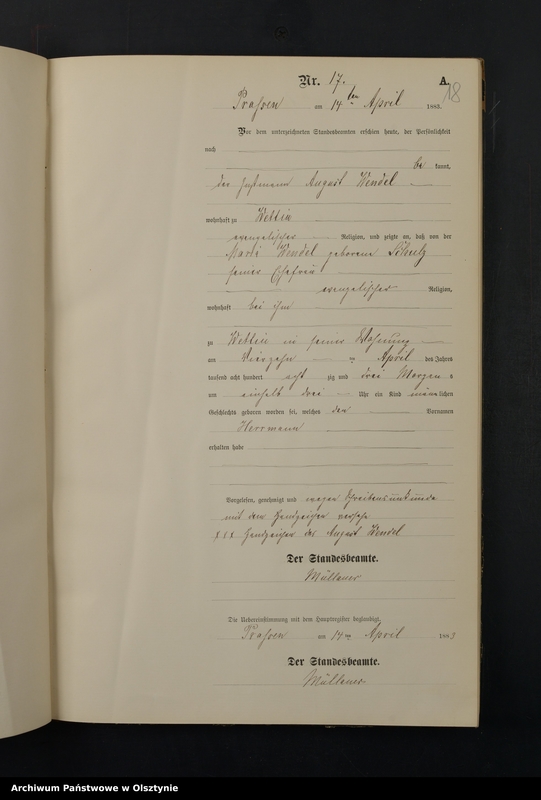 Nr. 17. A.
18
Prassen am 14 ten April 1883.
Vor dem unterzeichneten Standesbeamten erschien heute, der Persönlichkeit
nach
be kannt,
der Instmann August Wendel
wohnhaft zu Wettin
evangelischer Religion, und zeigte an, daß von der
Marie Wendel geborene Schulz
seiner Ehefrau
evangelischer Religion,
wohnhaft bei ihm
zu Wettin in seiner Wohnung
am vierzehn ten April des Jahres
tausend acht hundert acht zig und drei Morgens
um einhalb drei Uhr ein Kind männlichen
Geschlechts geboren worden sei, welches den Vornamen
Herrmann
erhalten habe
Vorgelesen, genehmigt und wegen Schreibensunkunde
mit dem Handzeichen versehn
xxx Handzeichen des August Wendel
Der Standesbeamte.
Die Uebereinstimmung mit dem Hauptregister beglaubigt,
Prassen am 14 ten April 1883
Der Standesbeamte.
Archiwum Państwowe w Olsztynie